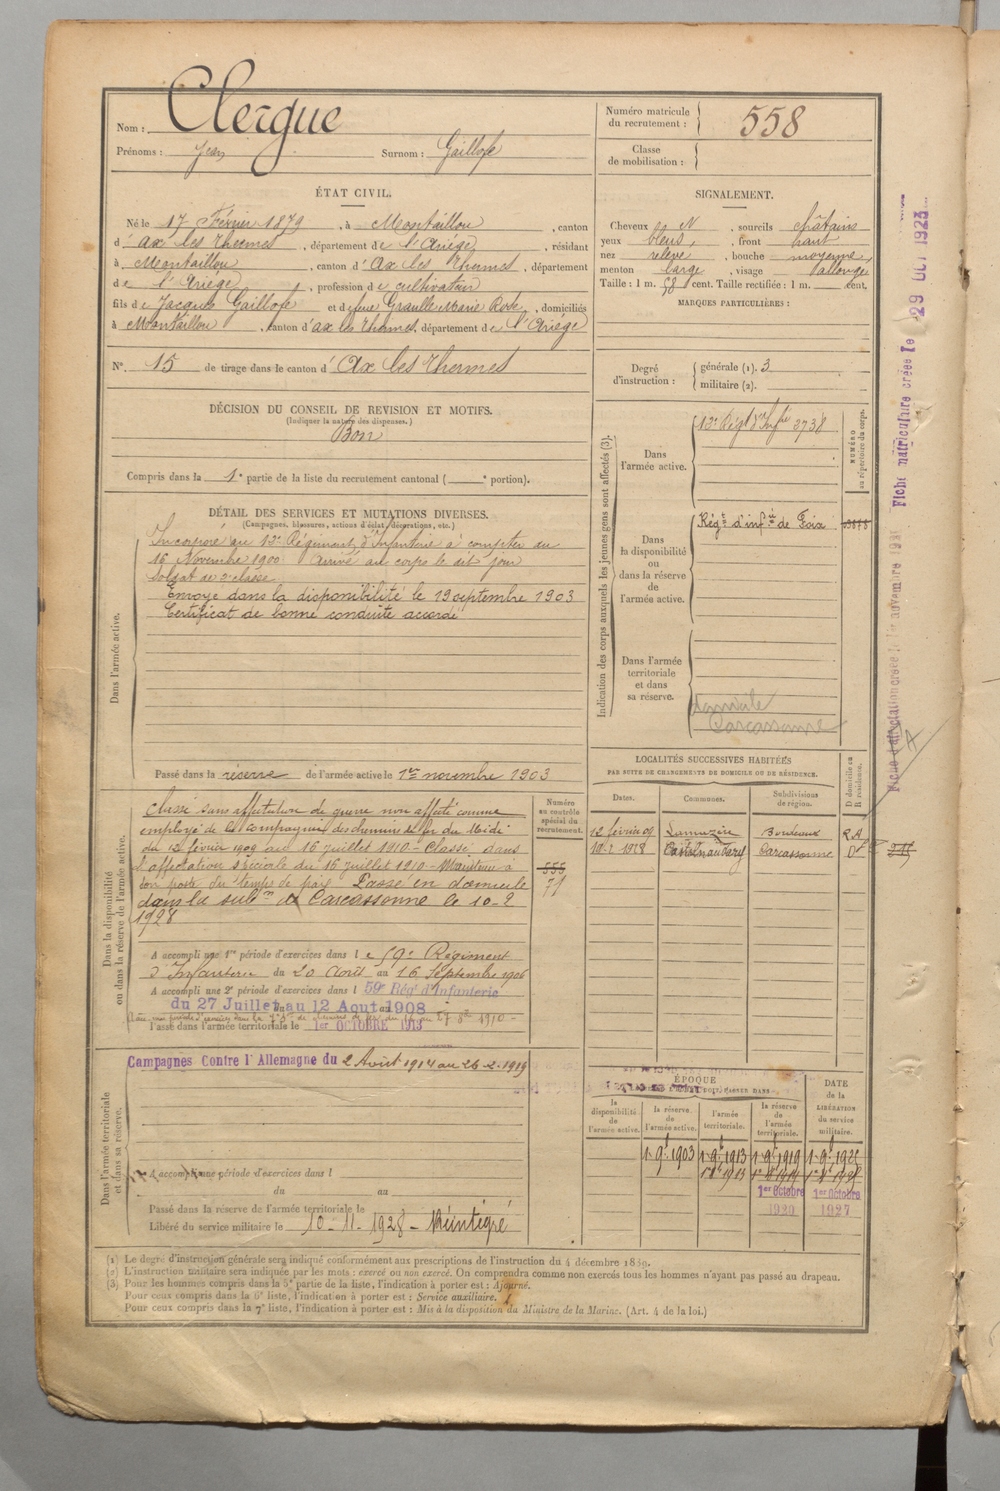 Nom : Clergue
Prénoms : Jean Surnom : Gaillofe
ÉTAT CIVIL.
Né le 17 Février 1879, à Montaillou, canton
d' ax les thermes, département de l'Ariège, résidant
à Montaillou, canton d' Ax les thermes, département
de l'Ariège, profession de cultivateur
fils de Jacques Gaillofe et de feue Graulle Marie Rose, domiciliés
à Montaillou, canton d'ax les thermes, département de l'Ariège
N° 15 de tirage dans le canton d' Ax les thermes
DÉCISION DU CONSEIL DE REVISION ET MOTIFS.
(Indiquer la nature des dispenses.)
Bon
Compris dans la 1e partie de la liste du recrutement cantonal ( e portion).
DÉTAIL DES SERVICES ET MUTATIONS DIVERSES.
(Campagnes, blessures, actions d'éclat, décorations, etc.)
Dans l'armée active.
Incorporé au 12e Régiment d'Infanterie à compter du
16 Novembre 1900 Arrivé au corps le dit jour
Soldat de 2e classe
Envoyé dans la disponibilité le 19 septembre 1903
Certificat de bonne conduite accordé
Passé dans la réserve de l'armée active le 1er novembre 1903
Dans la disponibilité
ou dans la réserve de l'armée active.
Numéro
au contrôle
spécial du
recrutement.
555
71
Classé sans affectation de guerre non affecté comme
employé de la compagnie des chemins de fer du Midi
du 12 février 1909 au 16 juillet 1910 - Classé dans
l'affectation spéciale du 16 juillet 1910 - Maintenu à
son poste du temps de paix Passé en domicile
dans la subd.on de Carcassonne le 10-2
1928
A accompli une 1re période d'exercices dans le 59e Régiment
d'Infanterie du 20 Août au 16 Septembre 1906
A accompli une 2e période d'exercices dans l 59e Régt d'Infanterie
du 27 Juillet au 12 Aout 1908
Passé dans l'armée territoriale le 1er OCTOBRE 1913
Dans l'armée territoriale
et dans sa réserve.
Campagnes Contre l'Allemagne du 2 Août 1914 au 26-2-1919
A accompli une période d'exercices dans l
du au
Passé dans la réserve de l'armée territoriale le
Libéré du service militaire le 10-11-1928 - Réintégré
Numéro matricule
du recrutement : 558
Classe
de mobilisation :
SIGNALEMENT.
Cheveux N, sourcils châtains
yeux bleus, front haut
nez relevé, bouche moyenne,
menton large, visage allongé
Taille : 1 m. 58 cent. Taille rectifiée : 1 m. cent.
MARQUES PARTICULIÈRES :
Degré
d'instruction :
générale (1). 3
militaire (2).
Indication des corps auxquels les jeunes gens sont affectés (3).
NUMÉRO
au répertoire du corps.
Dans
l'armée active.
12e Régt d'Infrie 3738
Dans
la disponibilité
ou
dans la réserve
de
l'armée active.
Régt d'infie de Foix
Dans l'armée
territoriale
et dans
sa réserve.
domicile
Carcassonne
LOCALITÉS SUCCESSIVES HABITÉES
PAR SUITE DE CHANGEMENTS DE DOMICILE OU DE RÉSIDENCE.
Dates. Communes. Subdivisions de région. D domicile ou R résidence.
12 février 09 Lamazin Bordeaux R.A
10-2 1928 Castelnaudary Carcassonne D
ÉPOQUE
la disponibilité de l'armée active.
la réserve de l'armée active.
l'armée territoriale.
la réserve de l'armée territoriale.
DATE
de la
LIBÉRATION
du service
militaire.
1-9bre 1903 1-9bre 1913 1-9bre 1919
1er Octobre 1er Octobre
1920 1927
Fiche matriculaire créée le 29 OCT 1923
(1) Le degré d'instruction générale sera indiqué conformément aux prescriptions de l'instruction du 4 décembre 1889.
(2) L'instruction militaire sera indiquée par les mots : exercé ou non exercé. On comprendra comme non exercés tous les hommes n'ayant pas passé au drapeau.
(3) Pour les hommes compris dans la 5e partie de la liste, l'indication à porter est : Ajourné.
Pour ceux compris dans la 6e liste, l'indication à porter est : Service auxiliaire.
Pour ceux compris dans la 7e liste, l'indication à porter est : Mis à la disposition du Ministre de la Marine. (Art. 4 de la loi.)